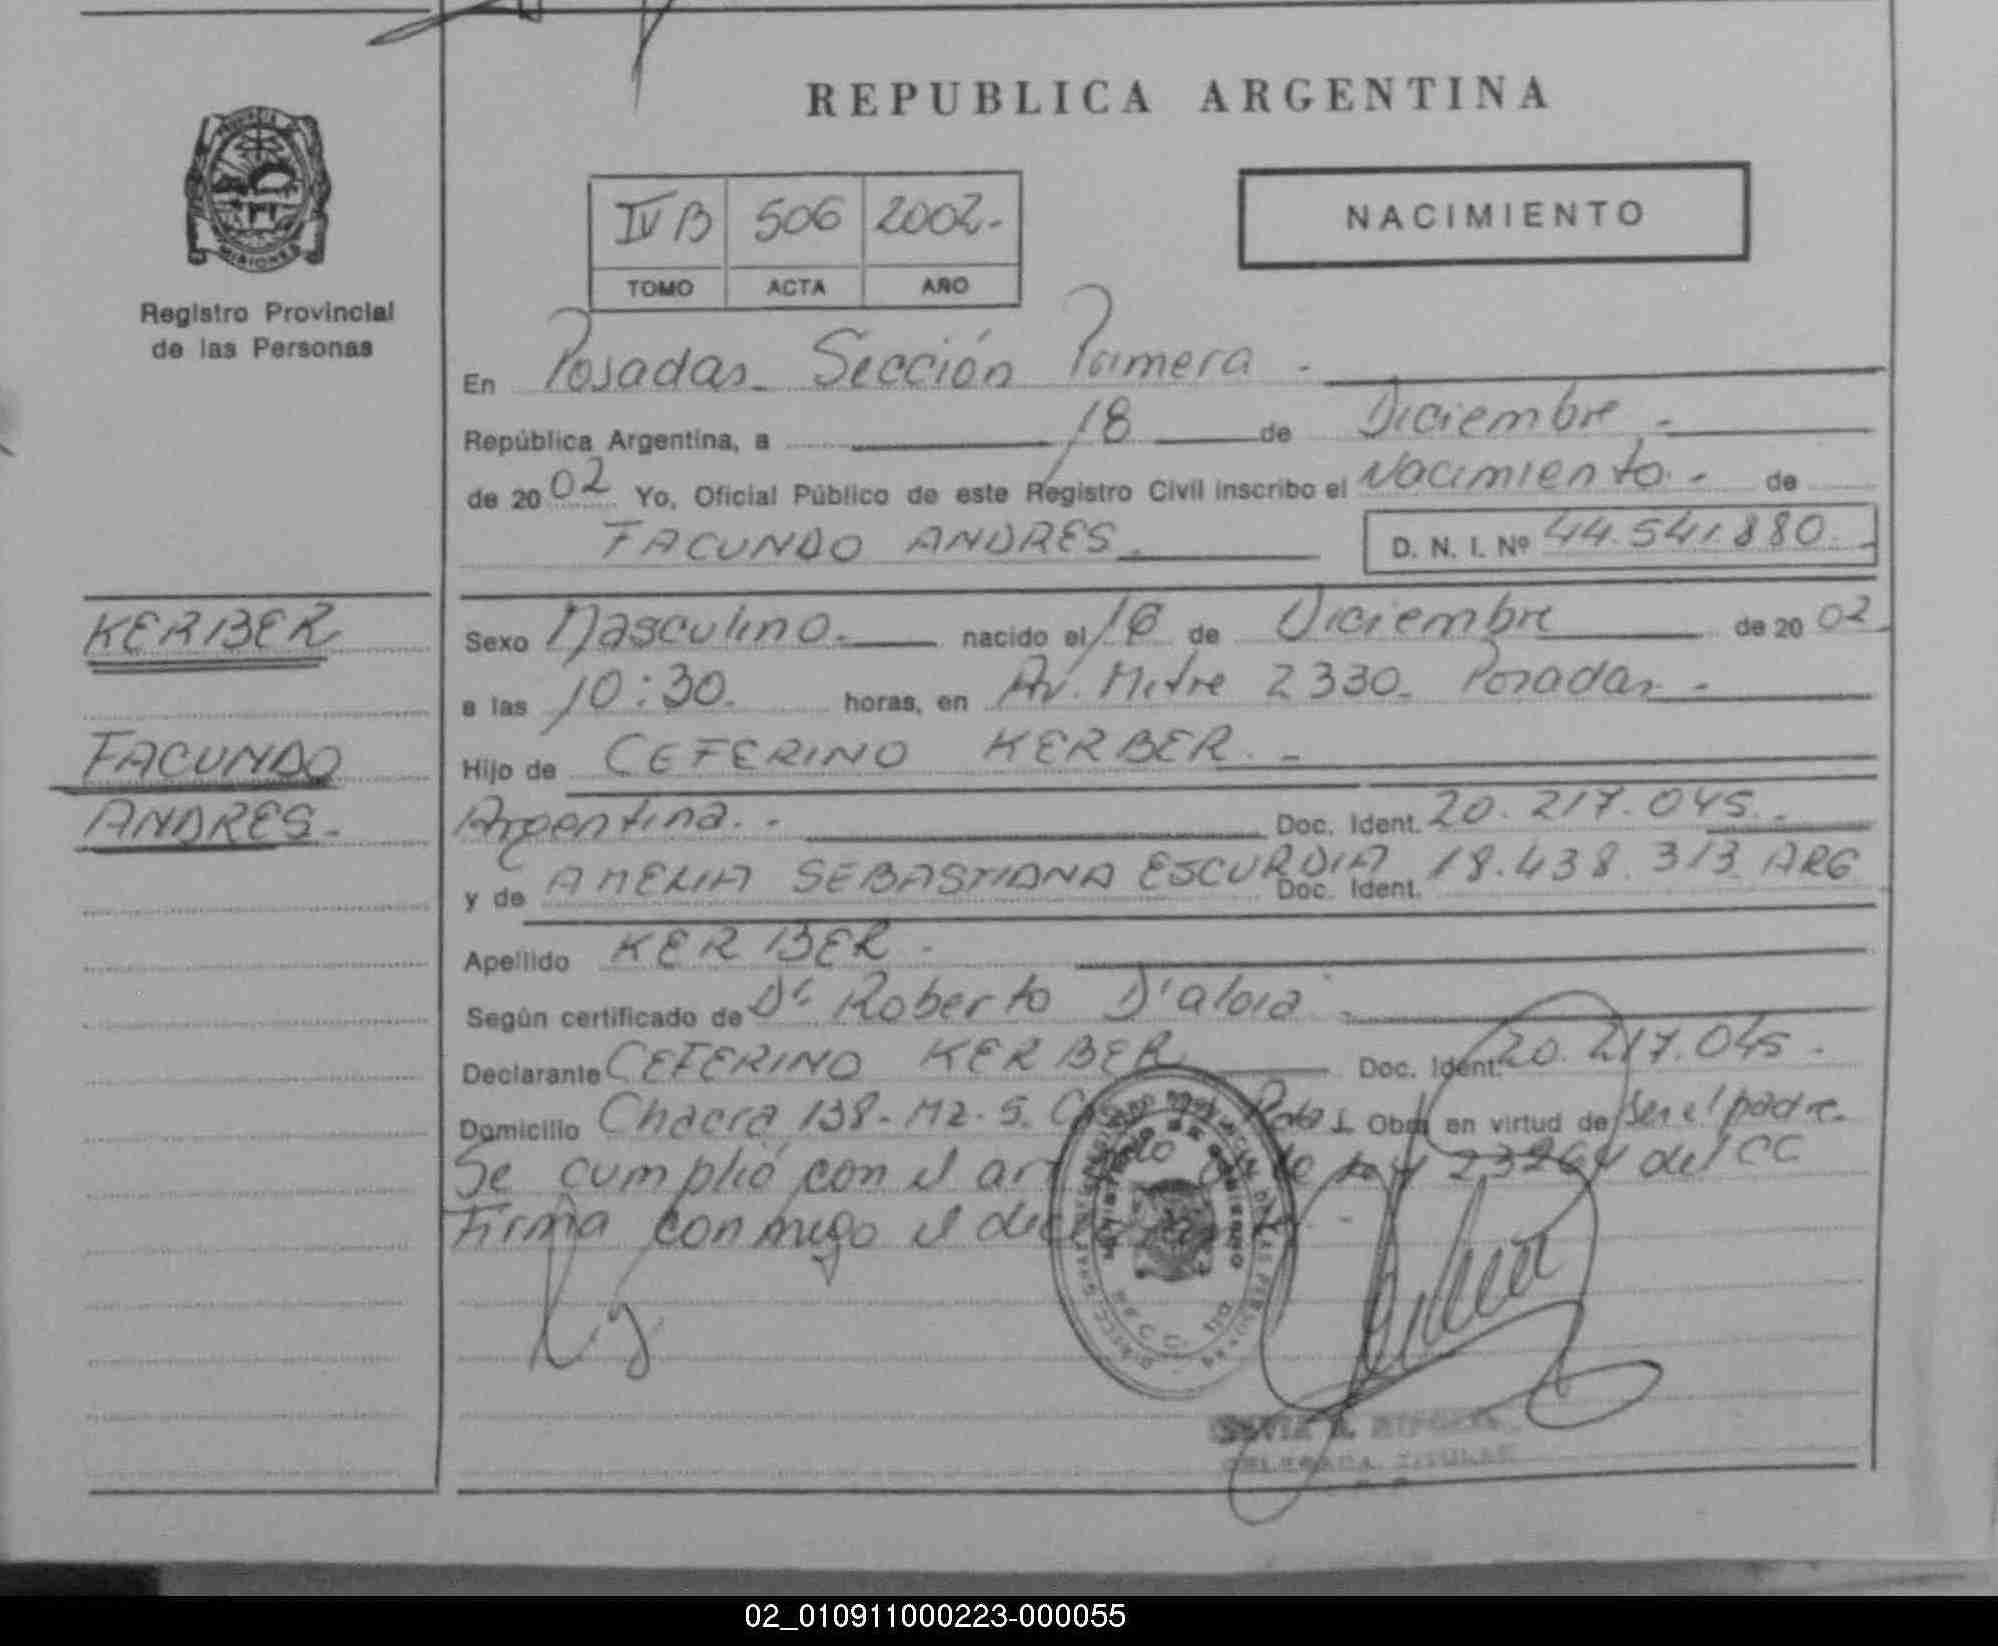 REPUBLICA ARGENTINA
PROVINCIA DE
MISIONES
Registro Provincial
de las Personas
IV B 506 2002.-
TOMO ACTA AÑO
NACIMIENTO
En Posadas. Sección Primera.-
República Argentina, a 18 de Diciembre.-
de 2002 Yo, Oficial Público de este Registro Civil inscribo el Nacimiento.- de
FACUNDO ANDRES. D. N. I. Nº 44.541.880.-
KERBER
FACUNDO
ANDRES.-
Sexo Masculino. nacido el de Diciembre de 2002
a las 10:30. horas, en Av. Mitre 2330. Posadas.-
Hijo de CEFERINO KERBER.-
Argentina.- Doc. Ident. 20.217.045.-
y de AMELIA SEBASTIANA ESCURDIA Doc. Ident. 18.438.313 ARG
Apellido KERBER.-
Según certificado de Dr Roberto D'aloia
Declarante CEFERINO KERBER Doc. Ident. 20.217.045.
Domicilio Chacra 138- Mz. 5. Pdas Obr. en virtud de Ser el padre.
Se cumplió con el art de la ley 23264 del CC
Firma conmigo el
DELEGADA TITULAR
02_010911000223-000055